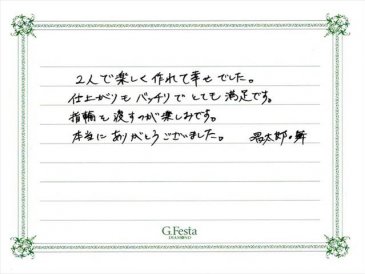 2人で楽しく作れて幸せでした。
仕上がりもバッチリでとても満足です。
指輪も渡すのが楽しみです。
本当にありがとうございました。 晃太郎・舞
G.Festa
DIAMOND